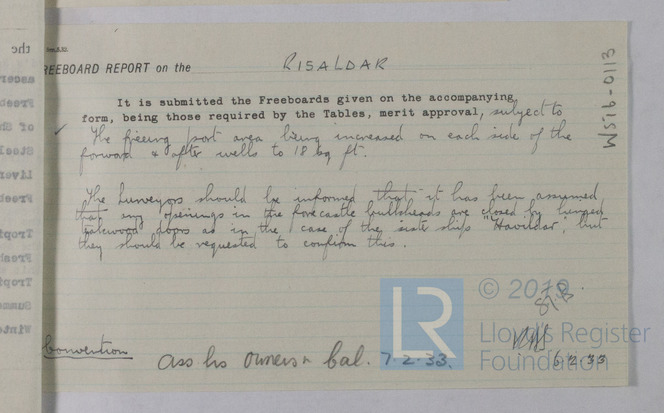 the
REEBOARD REPORT on the RISALDAR
WS16-0113
It is submitted the Freeboards given on the accompanying
form, being those required by the Tables, merit approval, subject to
The freeing port area being increased on each side of the
forward & after wells to 18 sq ft.
The Surveyors should be informed that it has been assumed
that any openings in the forecastle bulkheads are closed by hinged
doors as in the case of the sister ship "Havildar", but
they should be requested to confirm this.
Convention
Ass ho owners Cal. 7.2.33.
6.2.33
LR
© 2019
Lloyd's Register
Foundation
ascer
Freeb
of Sh
Steel
Liver
Freeb
Tropi
Fresh
Tropi
Summe
Winte